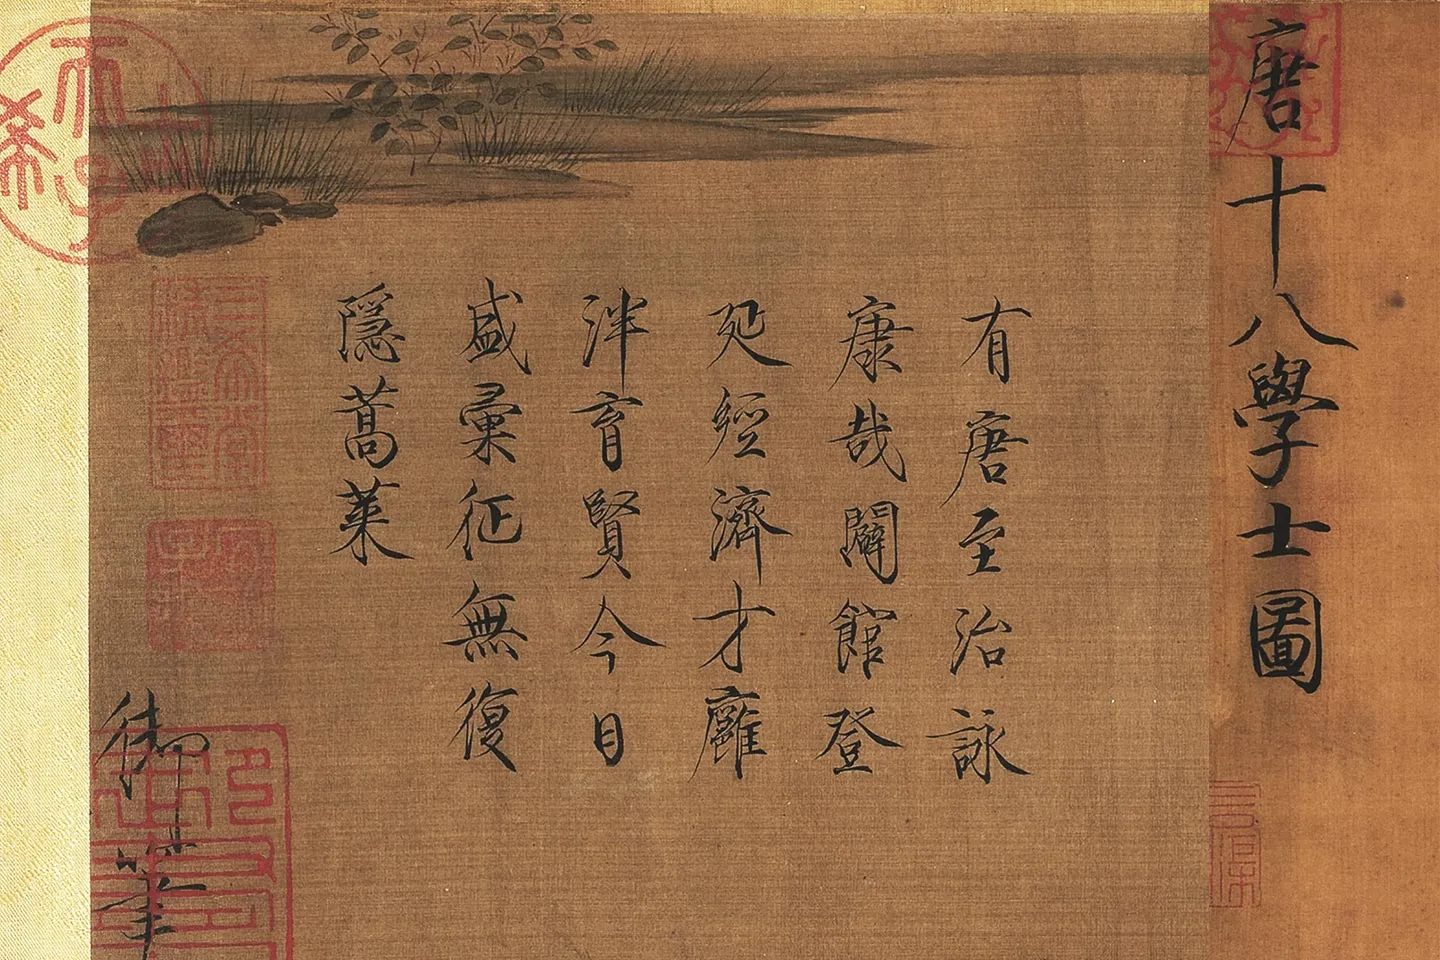 唐十八學士圖
有唐至治詠
康哉闢館登
延經濟才廱
泮育賢今日
盛彙征無復
隱蒿萊
三希堂精鑑璽
御筆